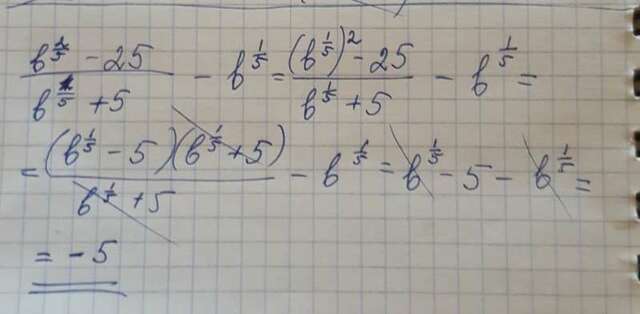 (b^(2/5) - 25)/(b^(1/5) + 5) - b^(1/5) = ((b^(1/5))^2 - 25)/(b^(1/5) + 5) - b^(1/5) =
= ((b^(1/5) - 5)(b^(1/5) + 5))/(b^(1/5) + 5) - b^(1/5) = b^(1/5) - 5 - b^(1/5) =
= -5